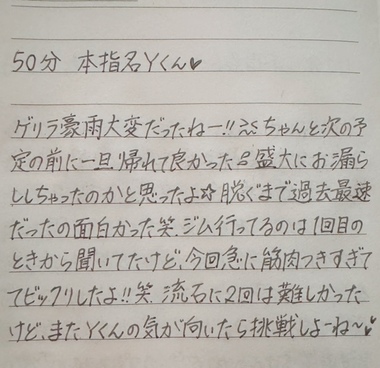 50分 本指名Yくん♥
ゲリラ豪雨大変だったねー!! ちゃんと次の予
定の前に一旦帰れて良かった 盛大にお漏ら
ししちゃったのかと思ったよ☆ 脱ぐまで過去最速
だったの面白かった笑 ジム行ってるのは1回目の
ときから聞いてたけど、今回急に筋肉つきすぎ
てビックリしたよ!!笑 流石に2回は難しかった
けど、またYくんの気が向いたら挑戦しよーね〜♥